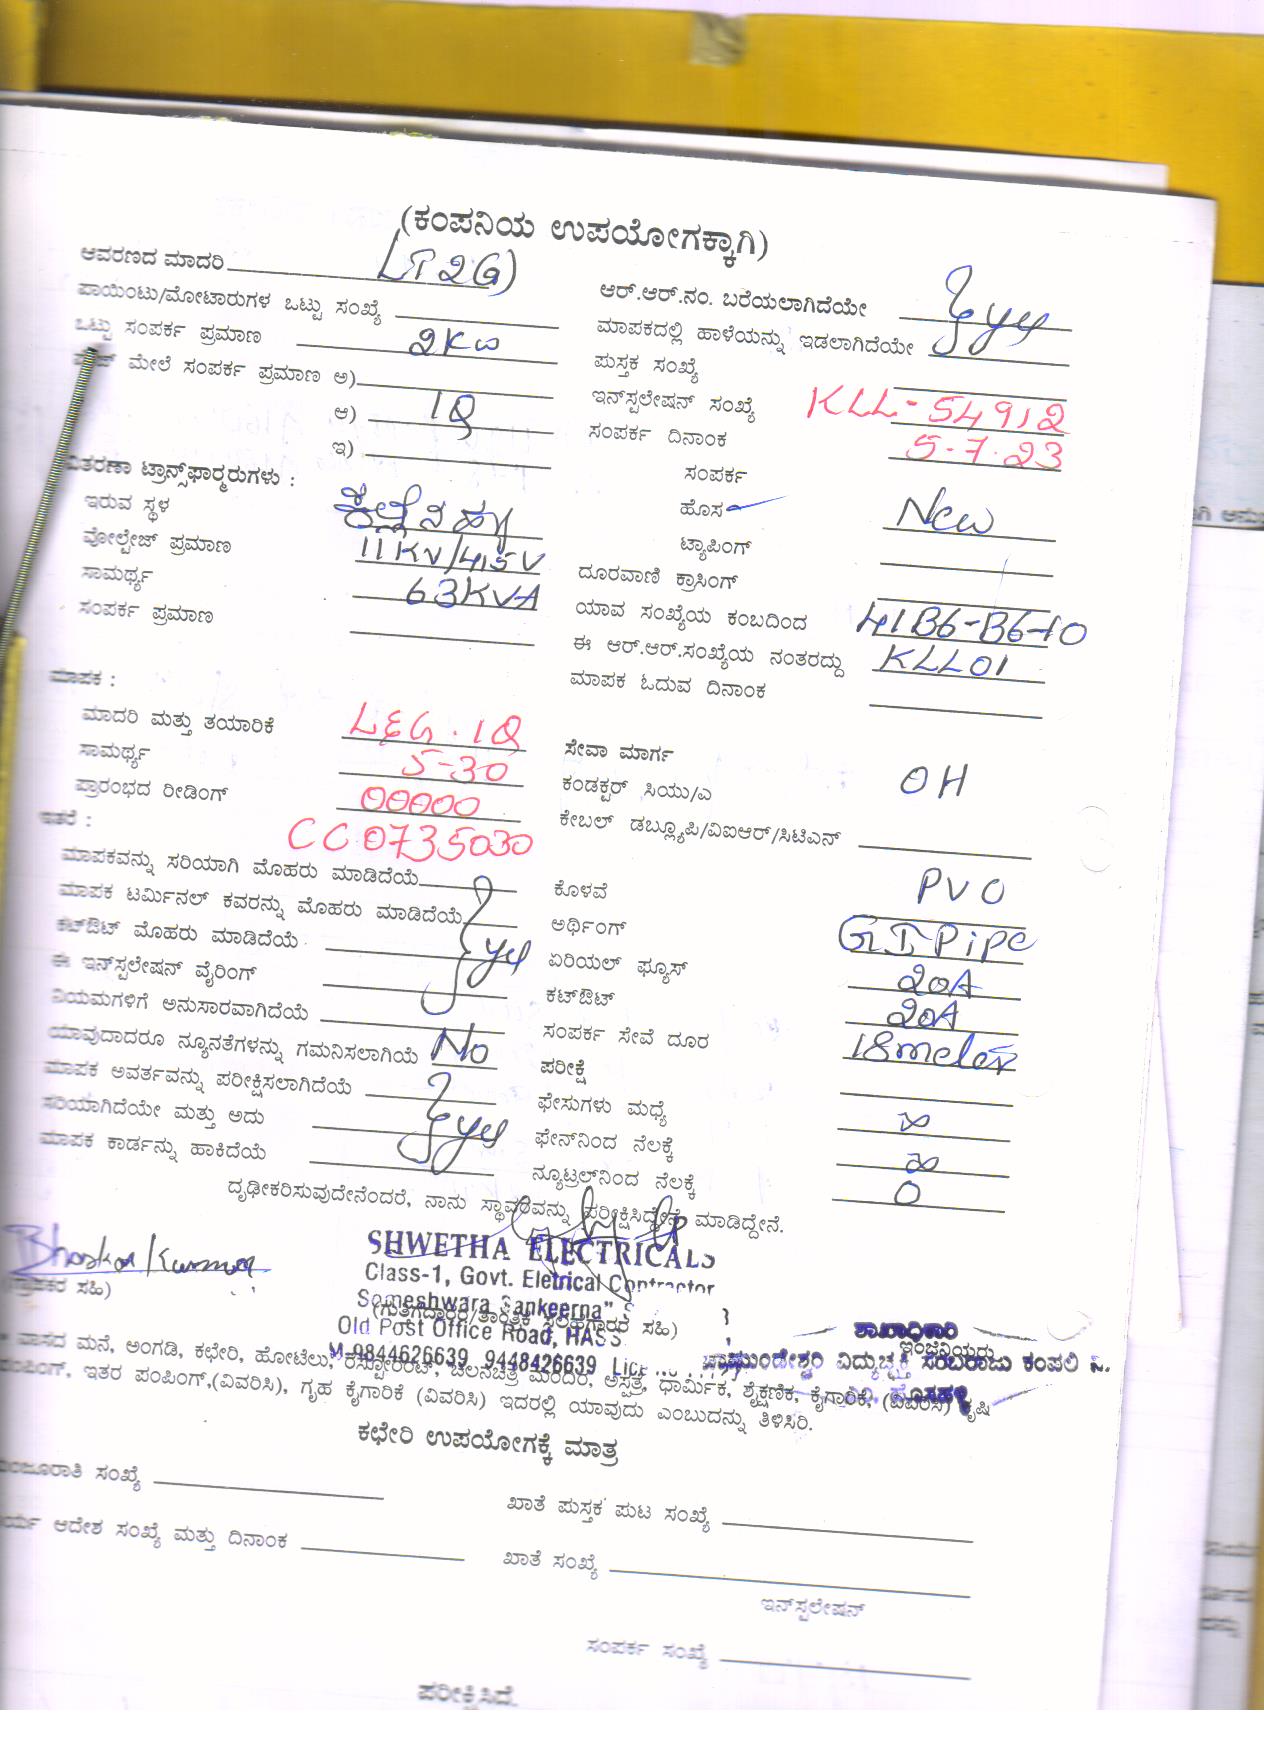 (ಕಂಪನಿಯ ಉಪಯೋಗಕ್ಕಾಗಿ)
ಆವರಣದ ಮಾದರಿ LT2G)
ಪಾಯಿಂಟು/ಮೋಟಾರುಗಳ ಒಟ್ಟು ಸಂಖ್ಯೆ
ಒಟ್ಟು ಸಂಪರ್ಕ ಪ್ರಮಾಣ 2Kw
ಮೇಲೆ ಸಂಪರ್ಕ ಪ್ರಮಾಣ ಅ)
ಆ)
ಇ)
ವಿತರಣಾ ಟ್ರಾನ್ಸ್‌ಫಾರ್ಮರುಗಳು :
ಇರುವ ಸ್ಥಳ
ವೋಲ್ಟೇಜ್ ಪ್ರಮಾಣ 11KV/415V
ಸಾಮರ್ಥ್ಯ 63KVA
ಸಂಪರ್ಕ ಪ್ರಮಾಣ
ಆರ್.ಆರ್.ನಂ. ಬರೆಯಲಾಗಿದೆಯೇ
ಮಾಪಕದಲ್ಲಿ ಹಾಳೆಯನ್ನು ಇಡಲಾಗಿದೆಯೇ
ಪುಸ್ತಕ ಸಂಖ್ಯೆ
ಇನ್‌ಸ್ಟಲೇಷನ್ ಸಂಖ್ಯೆ KLL-54912
ಸಂಪರ್ಕ ದಿನಾಂಕ 5-7-23
ಸಂಪರ್ಕ
ಹೊಸ New
ಟ್ಯಾಪಿಂಗ್
ದೂರವಾಣಿ ಕ್ರಾಸಿಂಗ್
ಯಾವ ಸಂಖ್ಯೆಯ ಕಂಬದಿಂದ 41B6-B6-10
ಈ ಆರ್.ಆರ್.ಸಂಖ್ಯೆಯ ನಂತರದ್ದು KLL01
ಮಾಪಕ ಓದುವ ದಿನಾಂಕ
ಮಾಪಕ :
ಮಾದರಿ ಮತ್ತು ತಯಾರಿಕೆ
ಸಾಮರ್ಥ್ಯ 5-30
ಪ್ರಾರಂಭದ ರೀಡಿಂಗ್ 00000
ಇತರೆ : CC0735030
ಮಾಪಕವನ್ನು ಸರಿಯಾಗಿ ಮೊಹರು ಮಾಡಿದೆಯೆ
ಮಾಪಕ ಟರ್ಮಿನಲ್ ಕವರನ್ನು ಮೊಹರು ಮಾಡಿದೆಯೆ
ಕಟ್‌ಔಟ್ ಮೊಹರು ಮಾಡಿದೆಯೆ
ಈ ಇನ್‌ಸ್ಟಲೇಷನ್ ವೈರಿಂಗ್
ನಿಯಮಗಳಿಗೆ ಅನುಸಾರವಾಗಿದೆಯೆ
ಯಾವುದಾದರೂ ನ್ಯೂನತೆಗಳನ್ನು ಗಮನಿಸಲಾಗಿಯೆ No
ಮಾಪಕ ಅವರ್ತವನ್ನು ಪರೀಕ್ಷಿಸಲಾಗಿದೆಯೆ
ಸರಿಯಾಗಿದೆಯೇ ಮತ್ತು ಅದು
ಮಾಪಕ ಕಾರ್ಡನ್ನು ಹಾಕಿದೆಯೆ
ಸೇವಾ ಮಾರ್ಗ
ಕಂಡಕ್ಟರ್ ಸಿಯು/ಎ OH
ಕೇಬಲ್ ಡಬ್ಲ್ಯೂಪಿ/ವಿಐಆರ್/ಸಿಟಿಎನ್
ಕೊಳವೆ PVO
ಅರ್ಥಿಂಗ್ GI Pipe
ಏರಿಯಲ್ ಫ್ಯೂಸ್ 20A
ಕಟ್‌ಔಟ್ 20A
ಸಂಪರ್ಕ ಸೇವೆ ದೂರ 18meter
ಪರೀಕ್ಷೆ
ಫೇಸುಗಳು ಮಧ್ಯೆ ∞
ಫೇಸ್‌ನಿಂದ ನೆಲಕ್ಕೆ ∞
ನ್ಯೂಟ್ರಲ್‌ನಿಂದ ನೆಲಕ್ಕೆ 0
ದೃಢೀಕರಿಸುವುದೇನೆಂದರೆ, ನಾನು ಸ್ಥಾವರವನ್ನು ಪರೀಕ್ಷಿಸಿದ್ದೇನೆ ಮಾಡಿದ್ದೇನೆ.
Bhaskar Kumar
(ಗ್ರಾಹಕರ ಸಹಿ)
SHWETHA ELECTRICALS
Class-1, Govt. Eletrical Contractor
Someshwara Sankeerna"
(ಗುತ್ತಿಗೆದಾರರ/ತಾಂತ್ರಿಕ ಸಲಹಗಾರರ ಸಹಿ)
Old Post Office Road, HASS
M-9844626639 9448426639
ಶಾಖಾಧಿಕಾರಿ
ಇಂಜಿನಿಯರು
ಚಾಮುಂಡೇಶ್ವರಿ ವಿದ್ಯುಚ್ಛಕ್ತಿ ಸರಬರಾಜು ಕಂಪನಿ ನಿ.
* ವಾಸದ ಮನೆ, ಅಂಗಡಿ, ಕಛೇರಿ, ಹೋಟೆಲು, ರೆಸ್ಟೋರೆಂಟ್, ಚಲನಚಿತ್ರ ಮಂದಿರ, ಆಸ್ಪತ್ರೆ, ಧಾರ್ಮಿಕ, ಶೈಕ್ಷಣಿಕ, ಕೈಗಾರಿಕೆ, (ವಿವರಿಸಿ) ಕೃಷಿ
ಪಂಪಿಂಗ್, ಇತರ ಪಂಪಿಂಗ್,(ವಿವರಿಸಿ), ಗೃಹ ಕೈಗಾರಿಕೆ (ವಿವರಿಸಿ) ಇದರಲ್ಲಿ ಯಾವುದು ಎಂಬುದನ್ನು ತಿಳಿಸಿರಿ.
ಕಛೇರಿ ಉಪಯೋಗಕ್ಕೆ ಮಾತ್ರ
ಮಂಜೂರಾತಿ ಸಂಖ್ಯೆ
ಖಾತೆ ಪುಸ್ತಕ ಪುಟ ಸಂಖ್ಯೆ
ಆದೇಶ ಸಂಖ್ಯೆ ಮತ್ತು ದಿನಾಂಕ
ಖಾತೆ ಸಂಖ್ಯೆ
ಇನ್‌ಸ್ಟಲೇಷನ್
ಸಂಪರ್ಕ ಸಂಖ್ಯೆ
ಪರೀಕ್ಷಿಸಿದೆ.